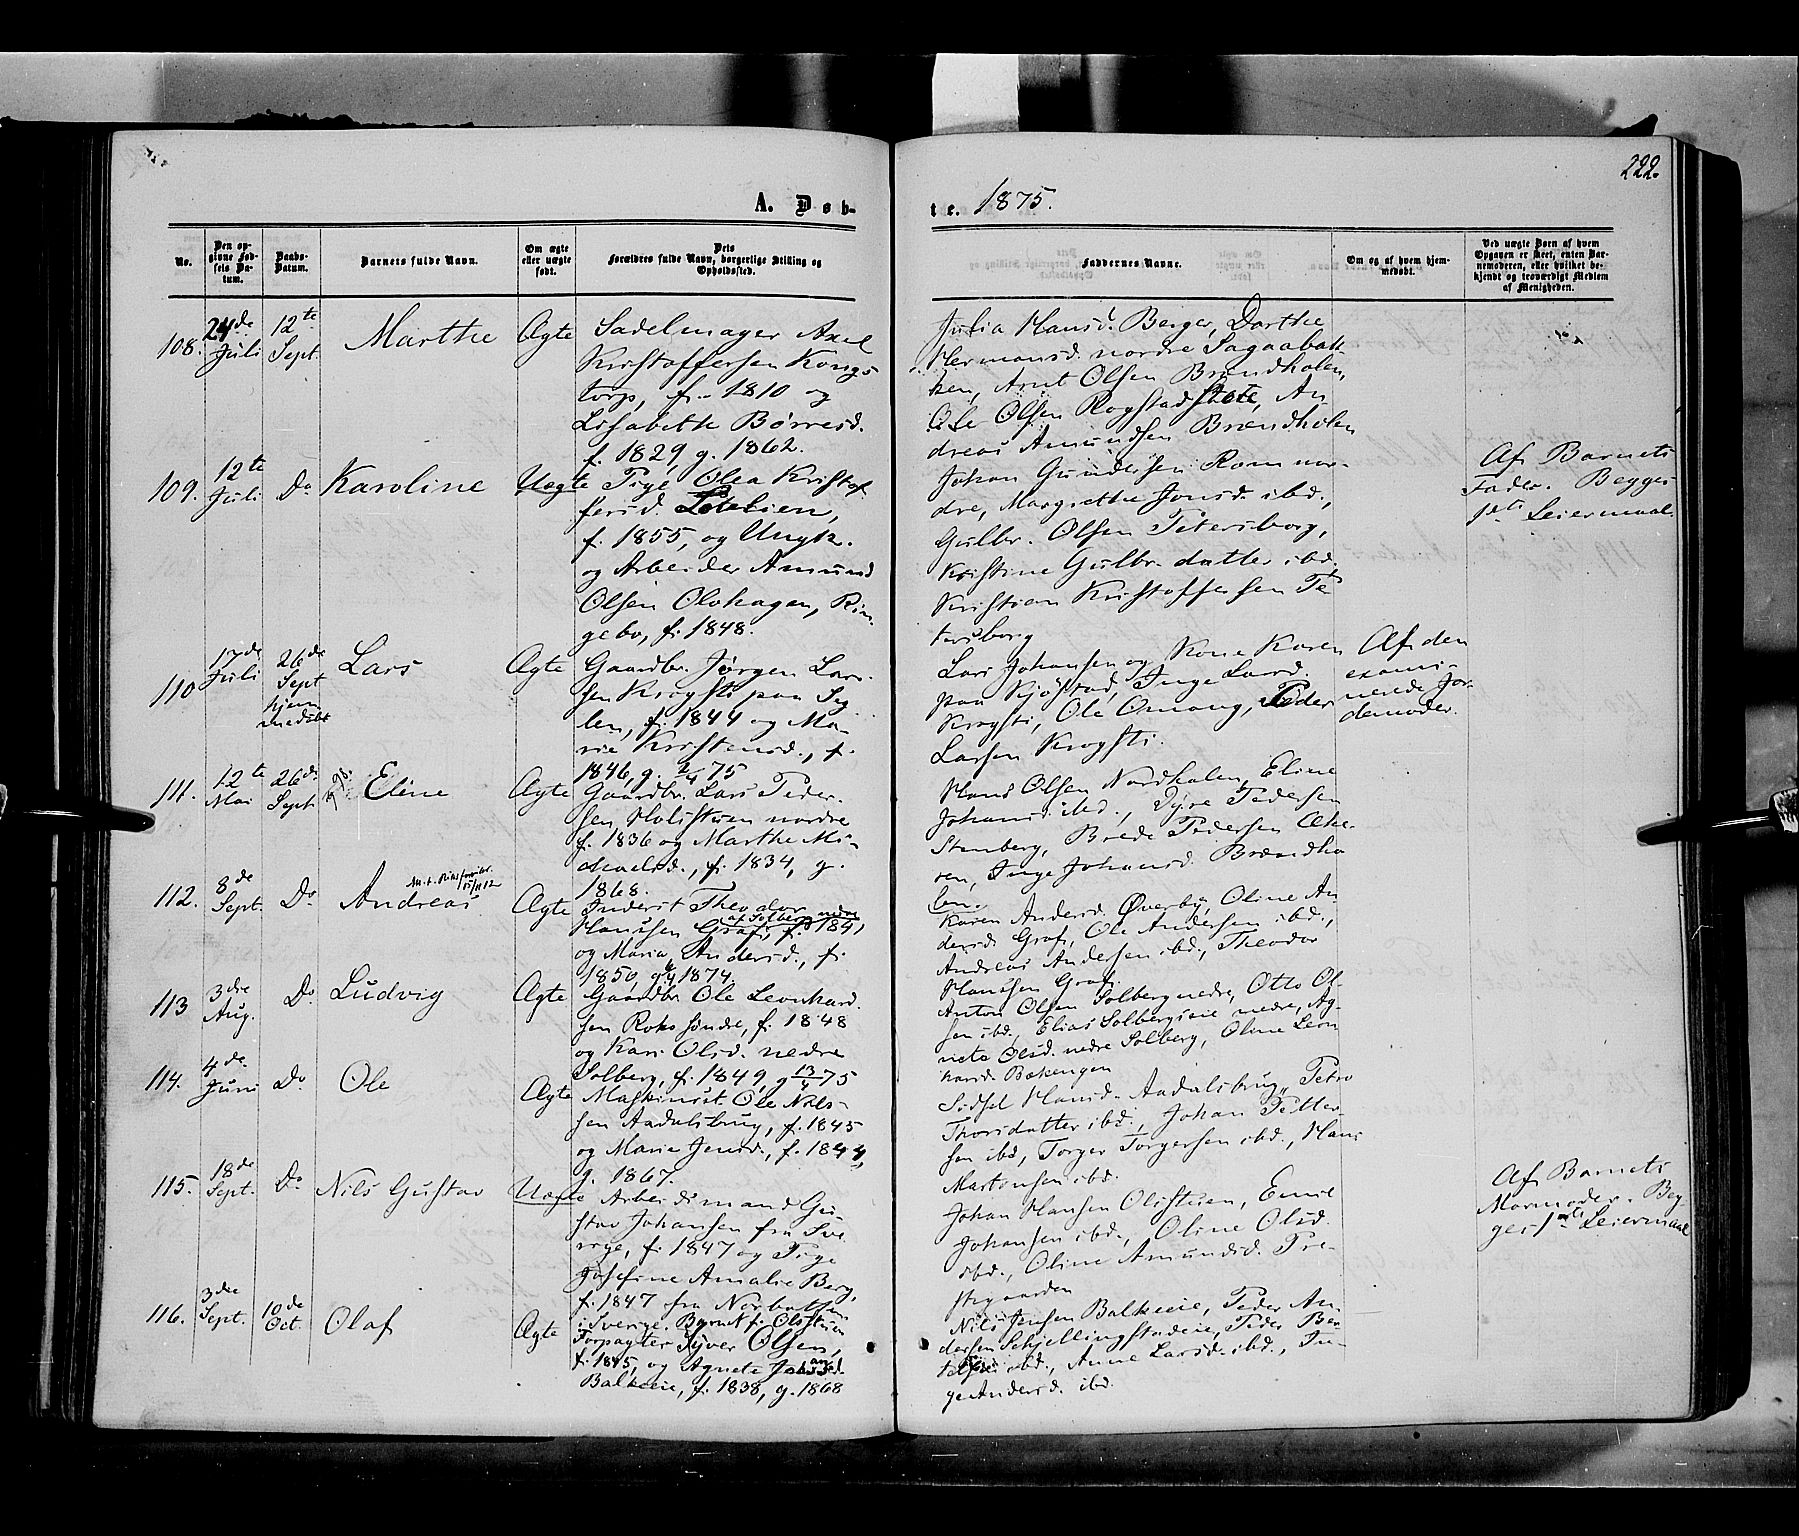 222.
A. Døb-
te. 1875.
No.
Den opgivne Fødsels Datum.
Daabs-Datum.
Barnets fulde Navn.
Om ægte eller uægte født.
Dets Forældres fulde Navn, borgerlige Stilling og Opholdssted.
Faddernes Navne.
Om og af hvem hjemmedøbt.
Ved uægte Børn af hvem Opgaven er skeet, enten Barnemoderen, eller hvilket bekjendt og troværdigt Medlem af Menigheden.
108. 24de Juli
12te Sept.
Marthe
Ægte
Sadelmager Axel
Kristoffersen Kongs
torp, f. 1810 og
Lisabeth Børresd.
f. 1829, g. 1862.
Julia Hansd. Berger, Dorthe
Hermansd. nordre Sagaabak-
ken, Arnt Olsen Brændholen,
Ole Olsen Rogstad, An
dreas Amundsen Brændholen
109. 12te Juli
Do
Karoline
Uægte
Pige Olea Kristof
fersd.
f. 1855, og Ungk.
og Arbeider Amund
Olsen Olohagen, Rin
gebo, f. 1848.
Johan Gundersen Rom nor-
dre, Margrethe Jonsd. ibd.,
Gulbr. Olsen Petersborg,
Kristine Gulbr. datter ibd.
Kristian Kristoffersen Pe
tersborg
Af Barnets
Fader. Begges
1ste Leiermaal.
110 17de Juli
26de Sept
hjem
medøbt
Lars
Ægte
Gaardbr. Jørgen Lar-
sen Krogsti paa
len, f. 1844 og Ma-
rie Kristensd., f.
1846, g. 2/4 75
Lars Johansen og Kone Karen
paa Kjøstad, Inge Larsd.
Krogsti, Ole Omang, Peder
Larsen Krogsti.
Af den
exami-
nerede Jor-
demoder.
111. 12te Mai
26de Sept.
Eline
Ægte
Gaardbr. Lars Peder-
sen Holistuen nordre
f. 1836 og Marthe Mi-
chaelsd., f. 1834, g.
1868.
Hans Olsen Nordholen, Eline
Johansd. ibd., Syre Pedersen
Stenberg, Brede Pedersen Æke-
ren, Inge Johansd. Brændho
len.
112. 8de Sept.
Do
Andreas
15/11 12
Ægte
Inderst Theodor
af Solberg nedre
Hanssen Graf, f. 1841
og Maria Andersd., f.
1850, g. 1874.
Karen Andersd. Øverby, Oline An
dersd. Graf, Ole Andersen ibd.,
Andreas Andersen ibd., Theodor
Hanssen Graf.
113 3die Aug.
Do
Ludvig
Ægte
Gaardbr. Ole Leonhard-
sen Roko søndre, f. 1848
og Kari Olsd. nedre
Solberg, f. 1849, g. 13/4 75
Anton Olsen Solberg nedre, Otto Ol-
sen ibd., Elias Solbergseie nedre, Ag-
nete Olsd. nedre Solberg, Oline Leon
hardsd. Bækengen
114. 4de Juni
Do
Ole
Ægte
Maskinist Ole Niels-
sen Aadalsbrug, f. 1845
og Marie Jensd., f. 1844,
g. 1867.
Sidsel Hansd. Aadalsbrug, Petro
Thorsdatter ibd., Johan Petter-
sen ibd, Torger Torgersen ibd., Hans
Martensen ibd.
115. 18de Sept.
Do
Nils Gustav
Uægte
Arbeidsmand Gu
stav Johansen fra Sve
rige, f. 1847 og Pige
Josefine Amalie Berg,
f. 1847 fra
i Sverige. Barnet f. Olsstuen
Johan Hansen Olsstuen, Emil
Johansen ibd., Oline Olsd.
ibd., Oline Amundsd. Pre-
stegaarden
Af Barnets
Mormoder. Beg-
ges 1ste Leiermaal
116. 3die Sept.
10de Oct.
Olaf
Ægte
Forpagter Syver Olsen,
f. 1845, og Agnete Johansd.
Balkeeie, f. 1838, g. 1868
Nils Jensen Balkeeie, Peder An
dersen Schjellingstadeie, Peder Ber
telsen ibd., Anne Larsd. ibd., In-
ge Andersd. ibd.